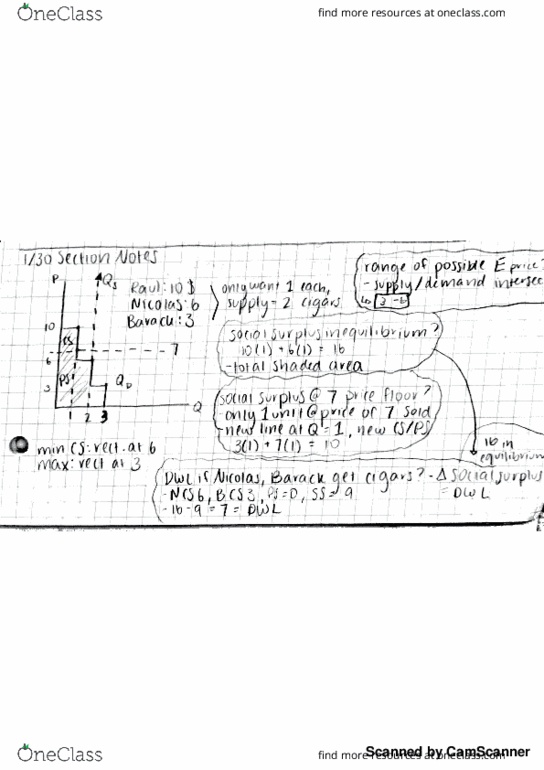 OneClass
find more resources at oneclass.com
1/30 Section Notes
P
Qs
Raul: 10 $
Nicolas: 6
Barack: 3
only want 1 each,
supply = 2 cigars
range of possible E price?
- supply/demand intersec
↳ 3-6
10
6
3
CS
PS
7
QD
Q
1 2 3
social surplus in equilibrium?
10(1) + 6(1) = 16
- total shaded area
social surplus @ 7 price floor?
only 1 unit @ price of 7 sold
new line at Q = 1, new CS/PS
3(1) + 7(1) = 10
16 in
equilibrium
min CS: rect. at 6
max: rect at 3
DWL if Nicolas, Barack get cigars? - Δ social surplus
= DWL
- NCS 6, BCS 3, PS = 0, SS = 9
- 16 - 9 = 7 = DWL
OneClass
find more resources at oneclass.com
Scanned by CamScanner